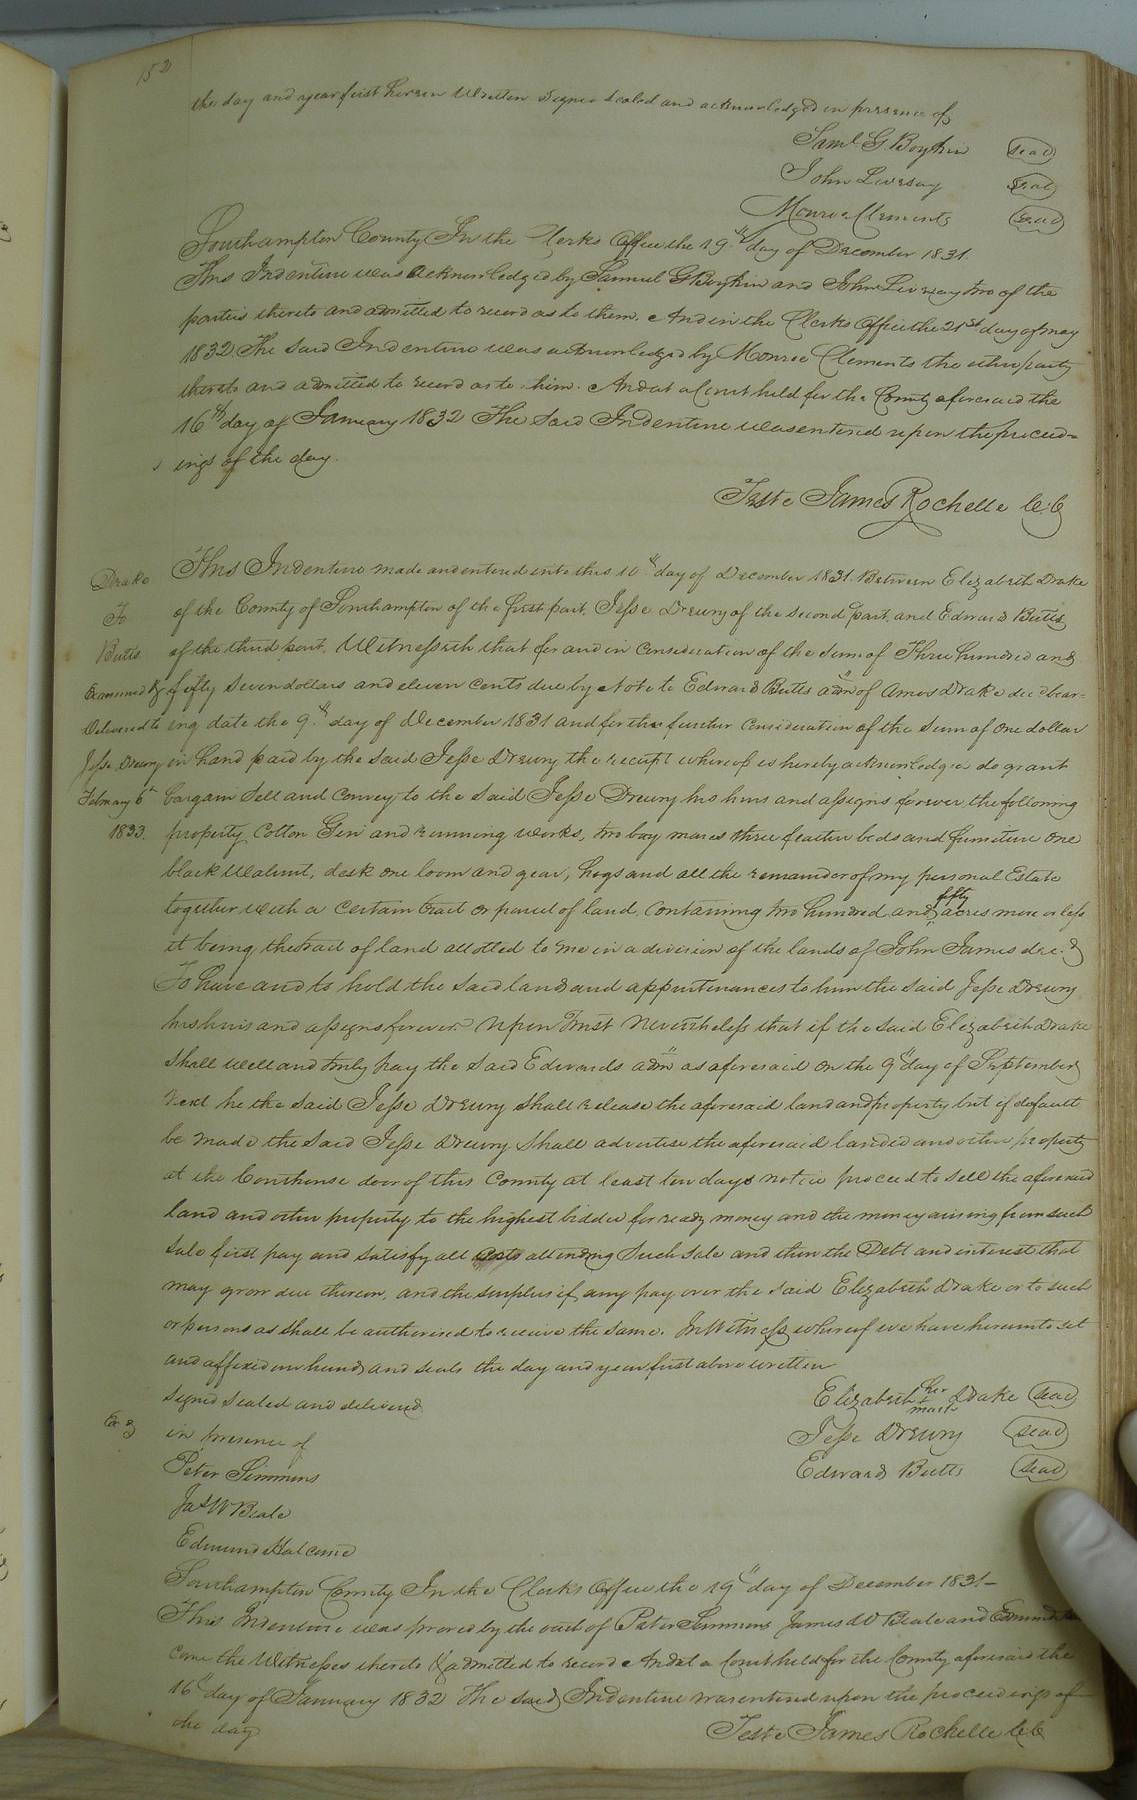 152
the day and year first herein written signed sealed and acknowledged in presence of
Saml G. Boykin seal
John Livesay seal
Monroe Clements seal
Southampton County In the Clerks Office the 19th day of December 1831.
This Indenture was acknowledged by Samuel G Boykin and John Livesay two of the
parties thereto and admitted to record as to them. And in the Clerks Office the 21st day of may
1832 The said Indenture was acknowledged by Monroe Clements the other party
thereto and admitted to record as to him. And at a Court held for the County aforesaid the
16th day of January 1832 The said Indenture was entered upon the proceed=
ings of the day.
Teste James Rochelle C.C
Drake
To
Butts
Examined &
Delivered to
Jesse Drewry
February 6th
1833.
This Indenture made and entered into this 10th day of December 1831. Between Elizabeth Drake
of the County of Southampton of the first part, Jesse Drewry of the second part, and Edward Butts
of the third part. Witnesseth that for and in consideration of the sum of Three hundred and
fifty seven dollars and eleven cents due by Note to Edward Butts adm of Amos Drake decd bear=
ing date the 9th day of December 1831 and for the further consideration of the sum of one dollar
in hand paid by the said Jesse Drewry the receipt whereof is hereby acknowledged do grant
bargain sell and convey to the said Jesse Drewry his heirs and assigns forever, the following
property Cotton Gin and running works, two bay mares three feather beds and furniture one
black walnut, desk one loom and gear, hogs and all the remainder of my personal Estate
together with a certain tract or parcel of land, containing two hundred and fifty acres more or less
it being the tract of land allotted to me in a division of the lands of John James decd
To have and to hold the said land and appurtenances to him the said Jesse Drewry
his heirs and assigns forever. Upon Trust Nevertheless that if the said Elizabeth Drake
shall well and truly pay the said Edwards adm as aforesaid on the 9th day of September
next he the said Jesse Drewry shall release the aforesaid land and property but if default
be made the said Jesse Drewry shall advertise the aforesaid landed and other property
at the Courthouse door of this County at least ten days notice proceed to sell the aforesaid
land and other property to the highest bidder for ready money and the money arising from such
sale first pay and satisfy all costs attending such sale and then the Debt and interest that
may grow due thereon, and the surplus if any pay over the said Elizabeth Drake or to such
or persons as shall be authorised to receive the same. In Witness whereof we have hereunto set
and affixed our hands and seals the day and year first above written
signed sealed and delivered
in presence of
Elizabeth her + mark Drake seal
Jesse Drewry seal
Edward Butts seal
Peter Simmons
Jas W Beale
Edmund Halcome
Southampton County In the Clerks Office the 19th day of December 1831—
This Indenture was proved by the oath of Peter Simmons James W Beale and Edmund Hal
come the Witnesses thereto & admitted to record And at a Court held for the County aforesaid the
16th day of January 1832 The said Indenture was entered upon the proceedings of
the day
Teste James Rochelle C.C